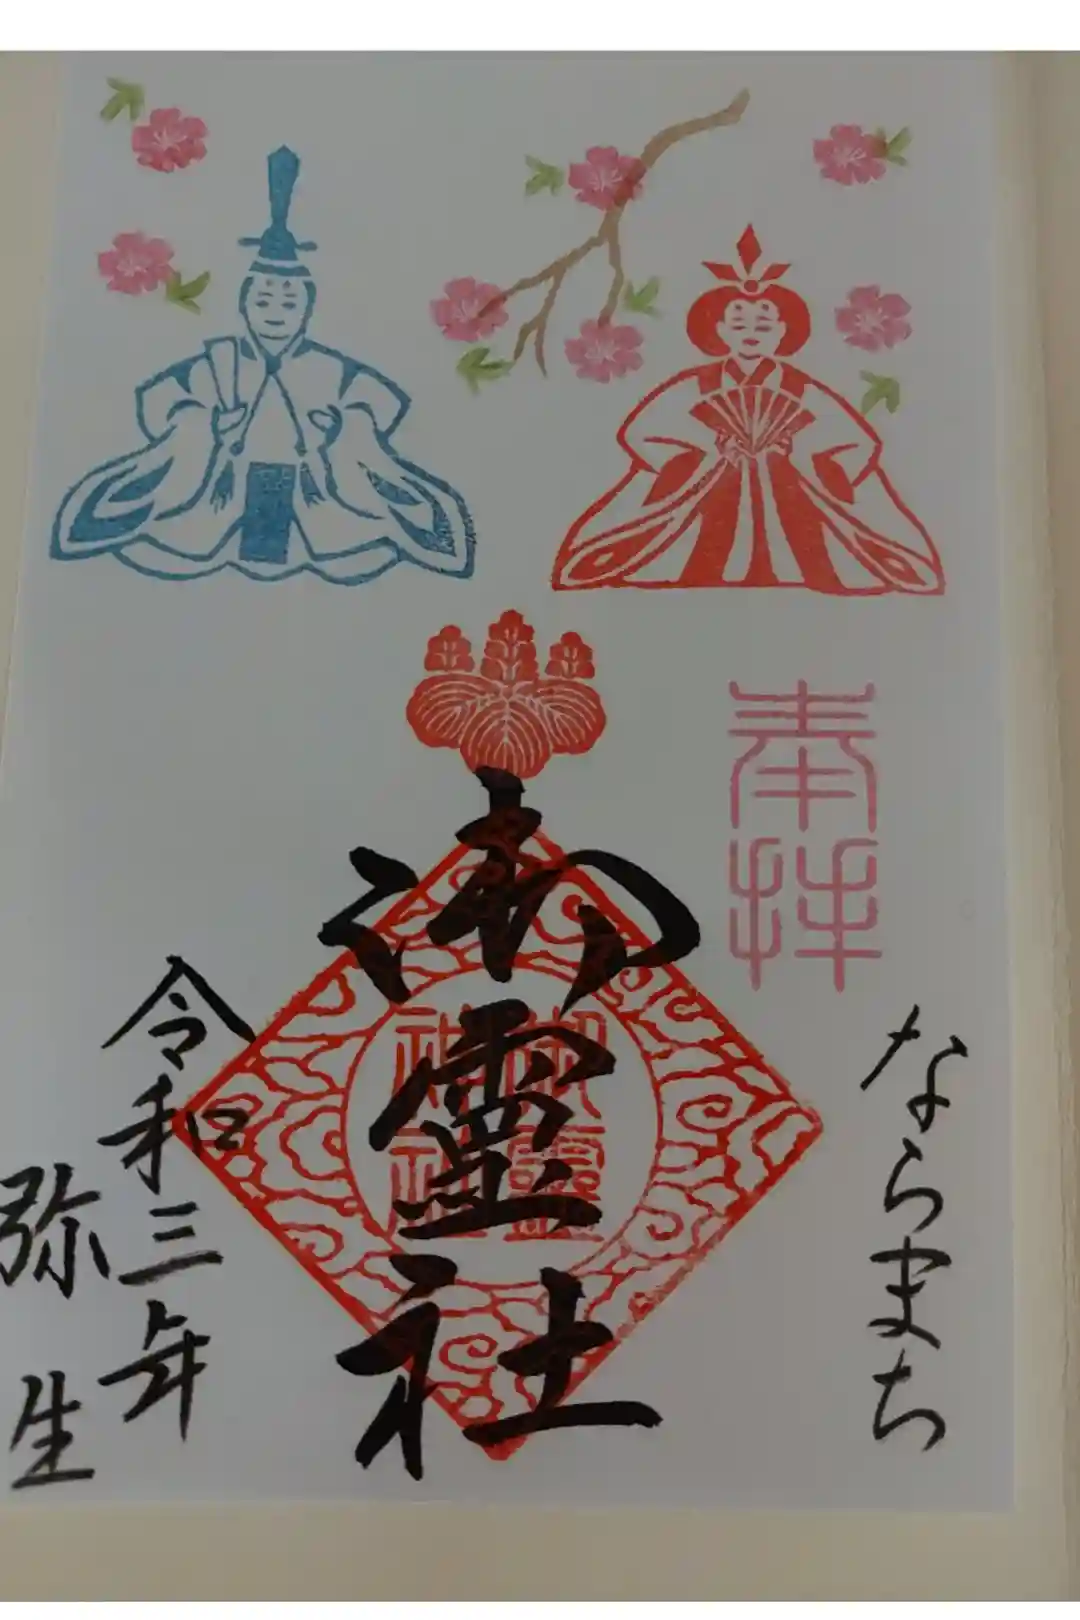 奉拝
ならまち
御霊社
御霊神社
令和三年
弥生